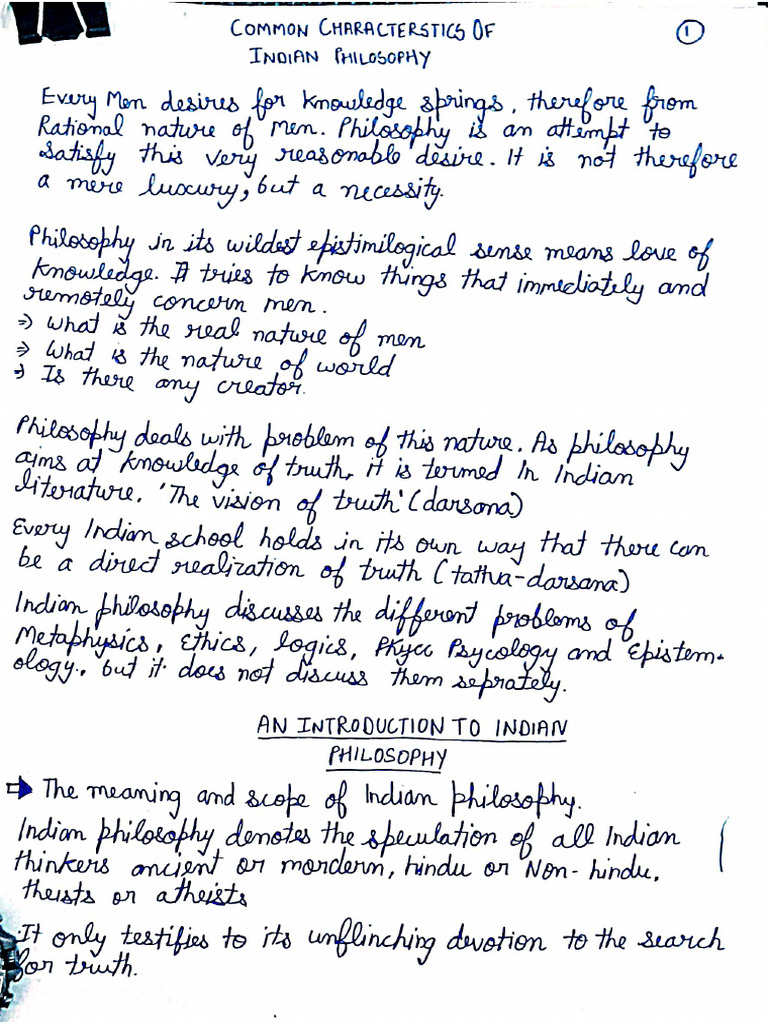 COMMON CHARACTERSTICS OF
1
INDIAN PHILOSOPHY
Every Men desires for knowledge springs, therefore from
Rational nature of Men. Philosophy is an attempt to
satisfy this very reasonable desire. It is not therefore
a mere luxury, but a necessity.
Philosophy in its wildest epistimilogical sense means love of
knowledge. It tries to know things that immediately and
remotely concern men.
⇒ What is the real nature of men
⇒ What is the nature of world
⇒ Is there any creator.
Philosophy deals with problem of this nature. As philosophy
aims at knowledge of truth, it is termed In Indian
literature. 'The vision of truth' (darsana)
Every Indian school holds in its own way that there can
be a direct realization of truth (tathva-darsana)
Indian philosophy discusses the different problems of
Metaphysics, Ethics, logics, Psycology and Epistem-
ology., but it does not discuss them seprately.
AN INTRODUCTION TO INDIAN
PHILOSOPHY
⇒ The meaning and scope of Indian philosophy.
Indian philosophy denotes the speculation of all Indian
thinkers ancient or mordern, hindu or Non-hindu,
theists or atheists
It only testifies to its unflinching devotion to the search
for truth.